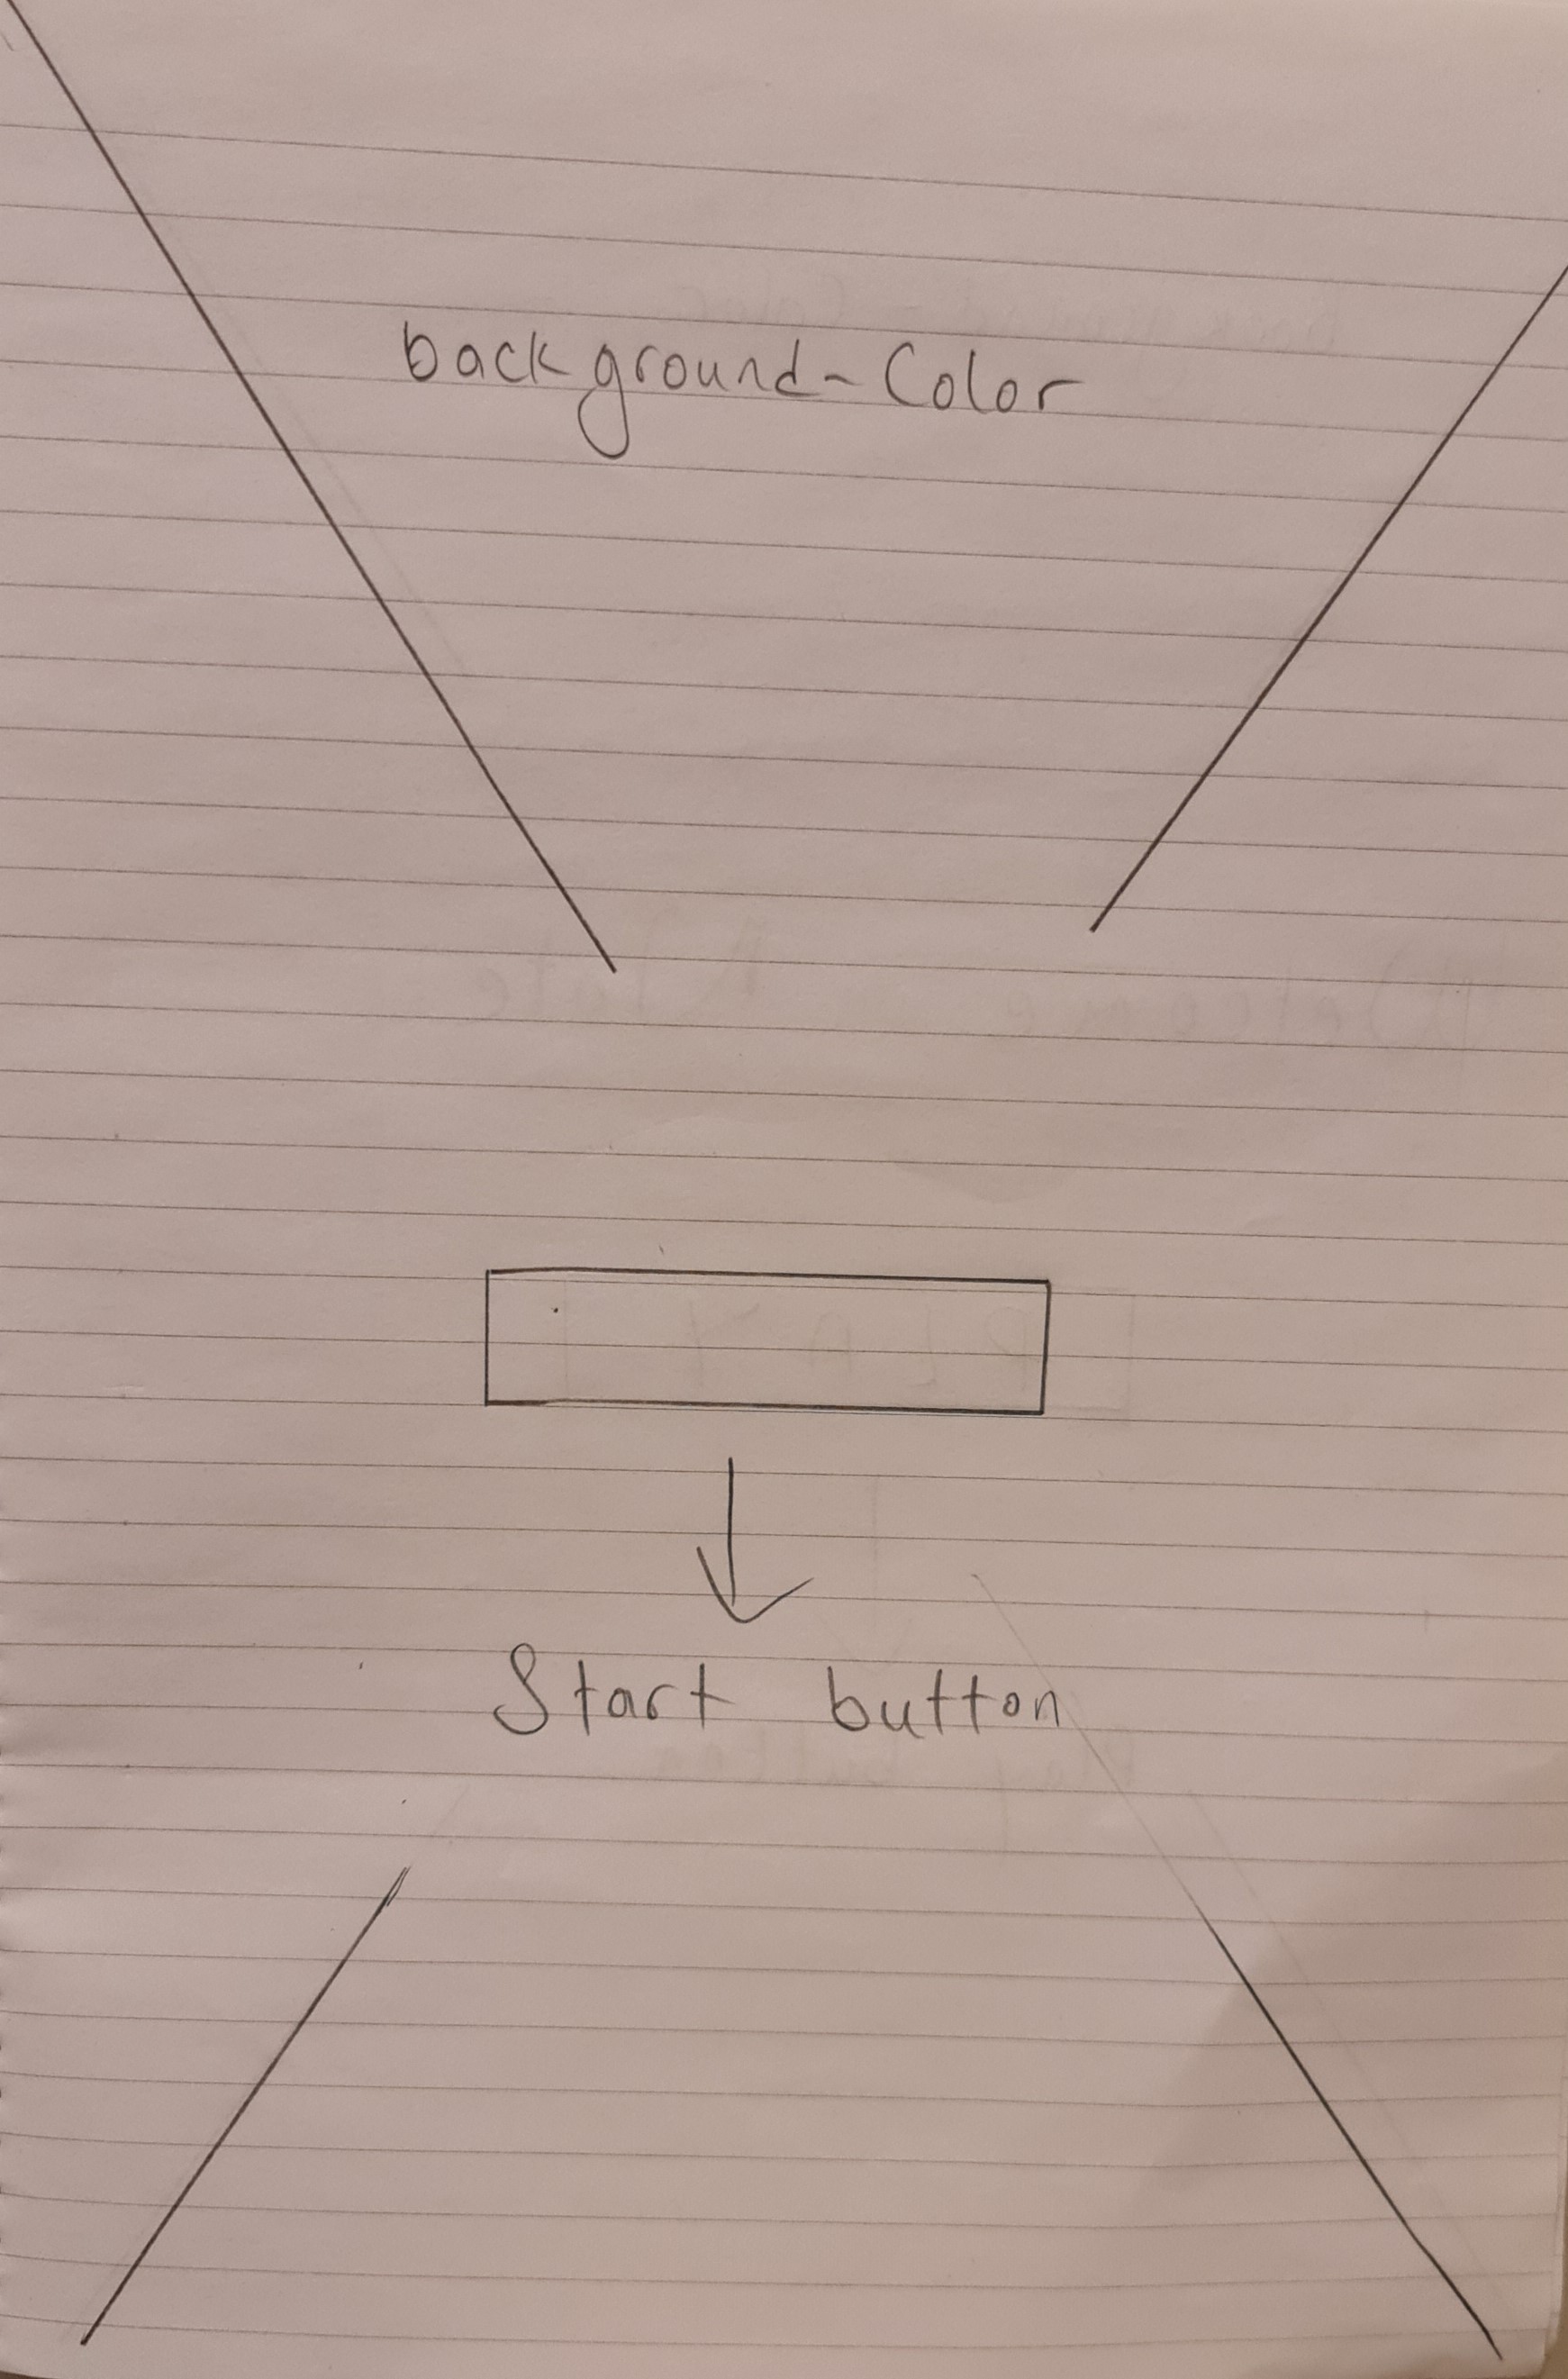 background-Color
Start button